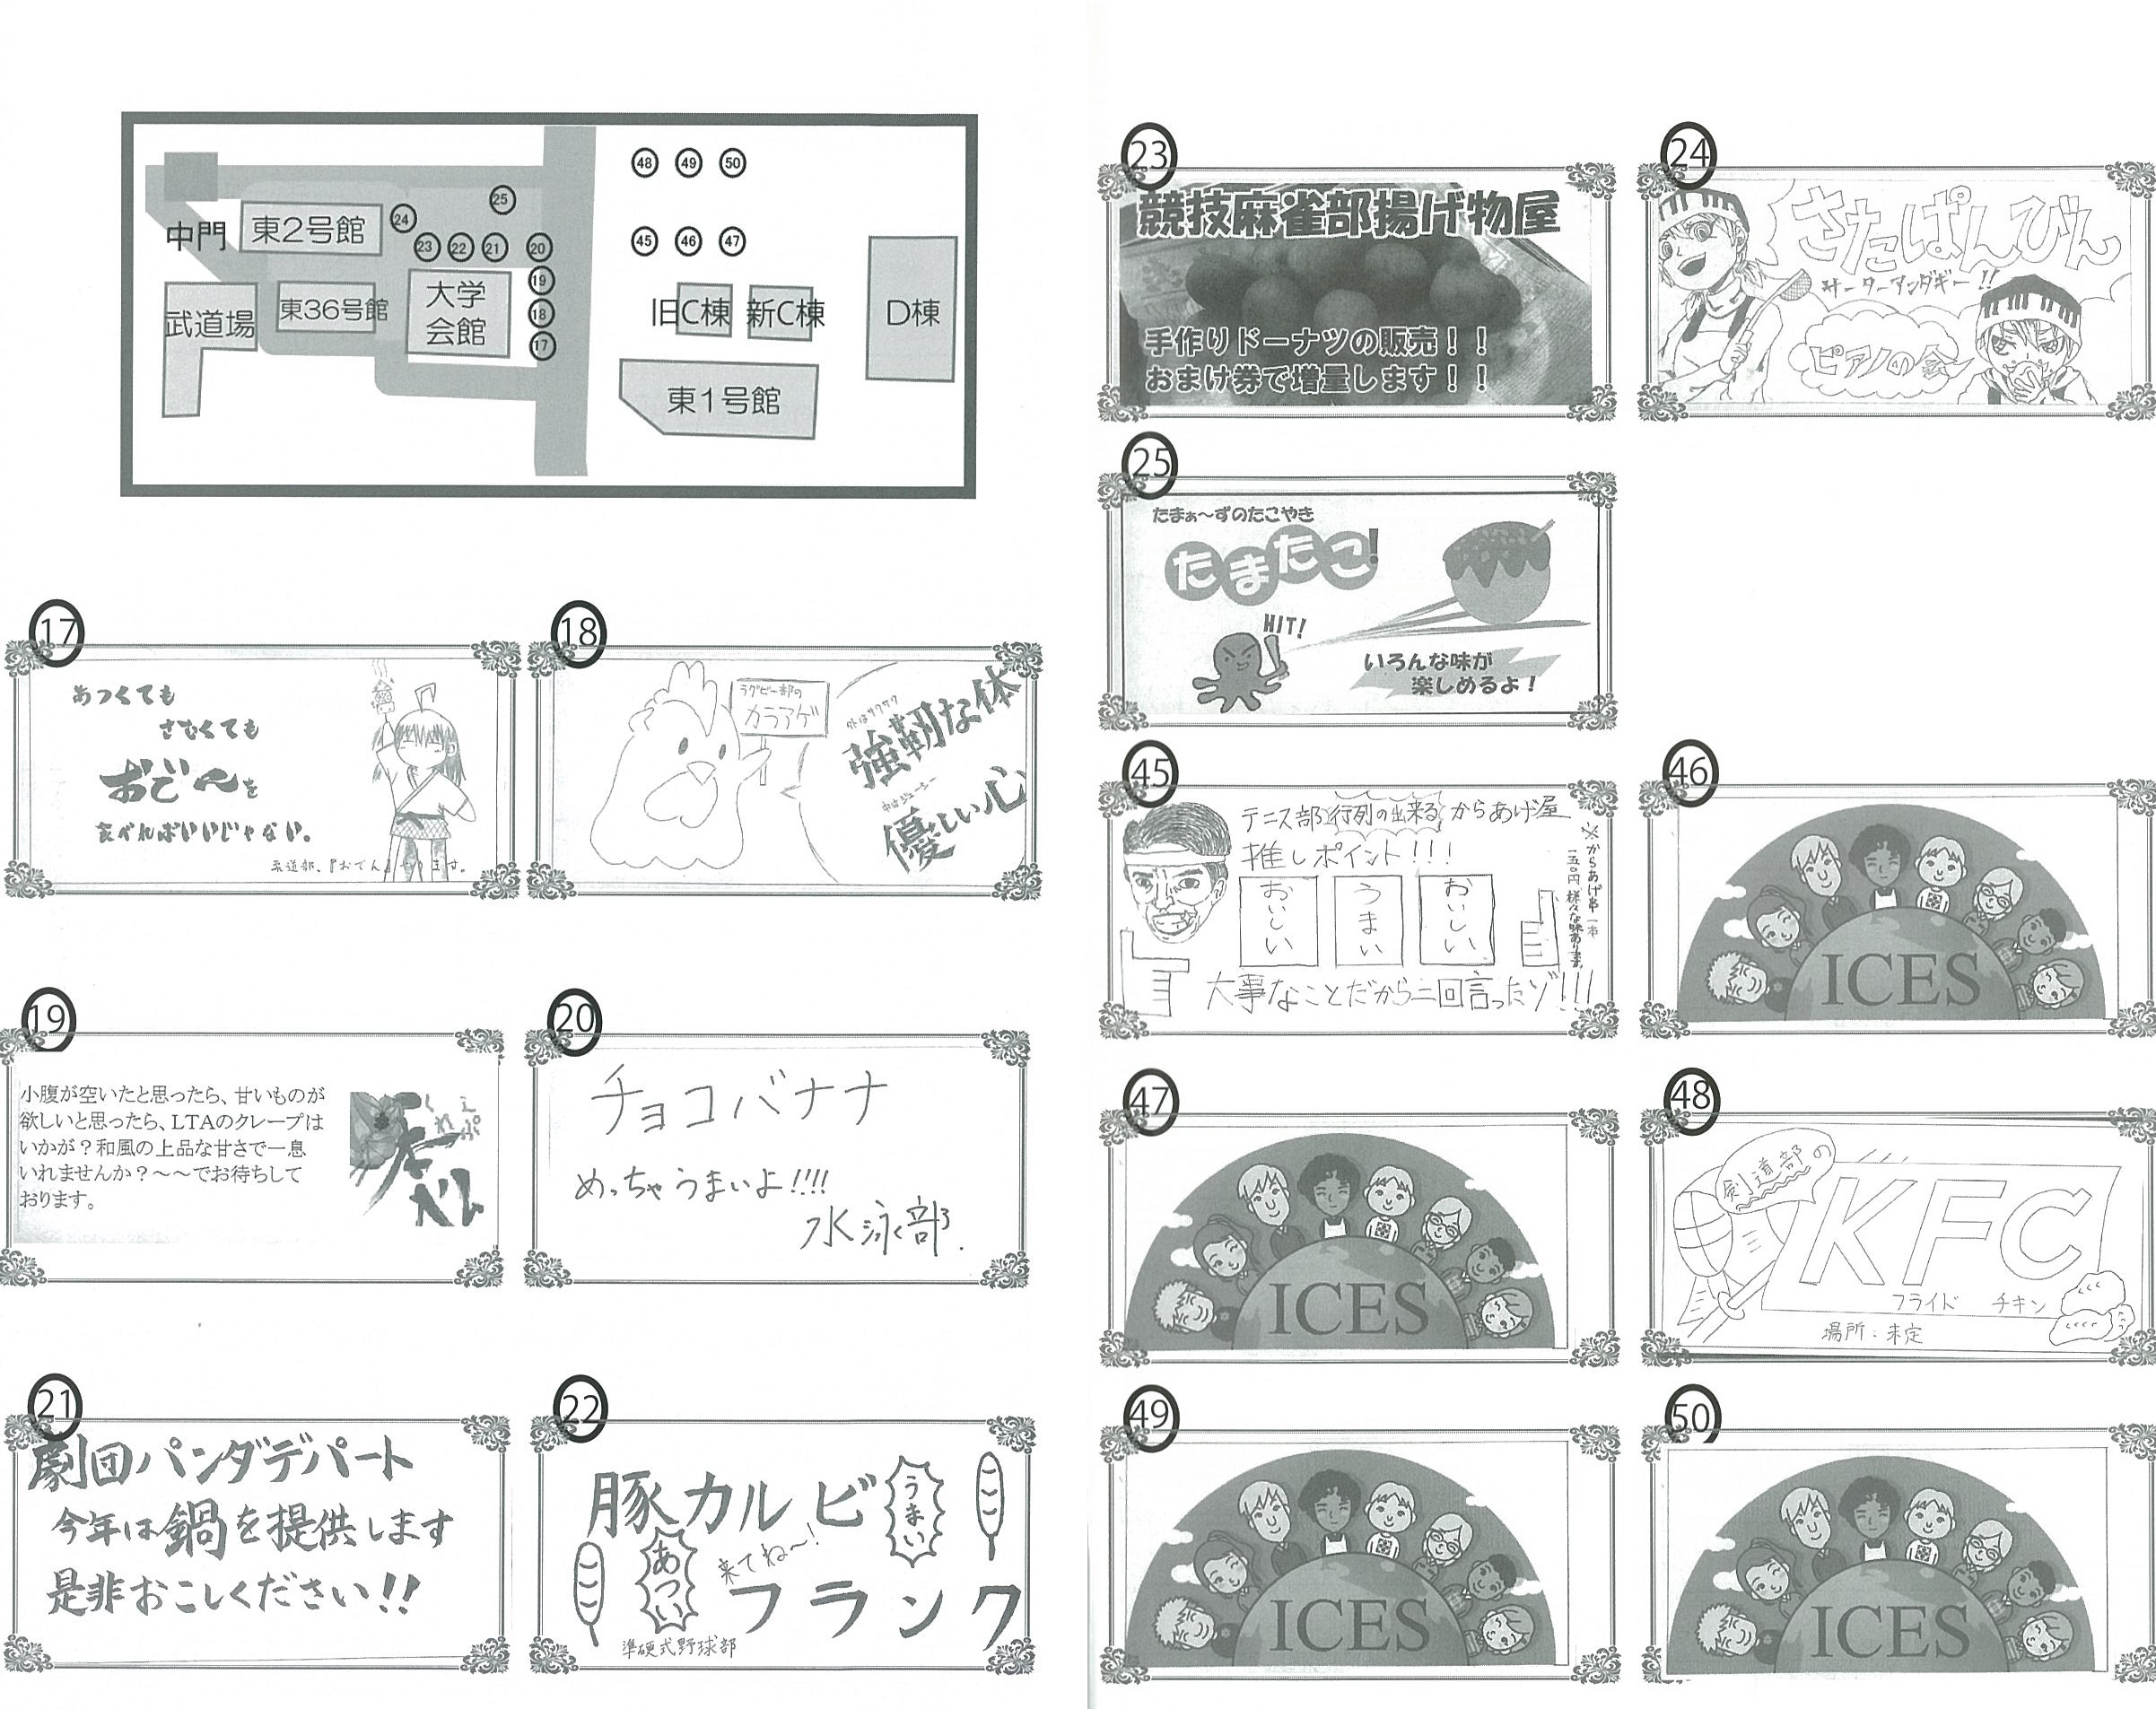 中門
東2号館
武道場
東36号館
大学
会館
旧C棟
新C棟
D棟
東1号館
48
49
50
45
46
47
25
24
23
22
21
20
19
18
17
17
あつくても
さむくても
おで〜を
食べればいいじゃない。
柔道部、『おでん』やります。
18
ラグビー部の
カラアゲ
外はサクサク
強靭な体
中はジューシー
優しい心
19
小腹が空いたと思ったら、甘いものが
欲しいと思ったら、LTAのクレープは
いかが？和風の上品な甘さで一息
いれませんか？〜〜でお待ちして
おります。
くれえぷ
20
チョコバナナ
めっちゃうまいよ!!!!
水泳部.
21
劇団パンダデパート
今年は鍋を提供します
是非おこしください!!
22
豚カルビ
うまい
あつい
来てね〜!
フランク
準硬式野球部
23
競技麻雀部揚げ物屋
手作りドーナツの販売！！
おまけ券で増量します！！
24
さたぱんびん
サーターアンダギー!!
ピアノの会
25
たまぁ〜ずのたこやき
たまたこ!
HIT!
いろんな味が
楽しめるよ！
45
テニス部行列の出来るからあげ屋
推しポイント!!!
おいしい
うまい
おいしい
※からあげ串一本
一五〇円 様々な味あります。
大事なことだから二回言ったゾ!!!
46
ICES
47
ICES
48
剣道部の
KFC
フライド チキン
場所：未定
49
ICES
50
ICES